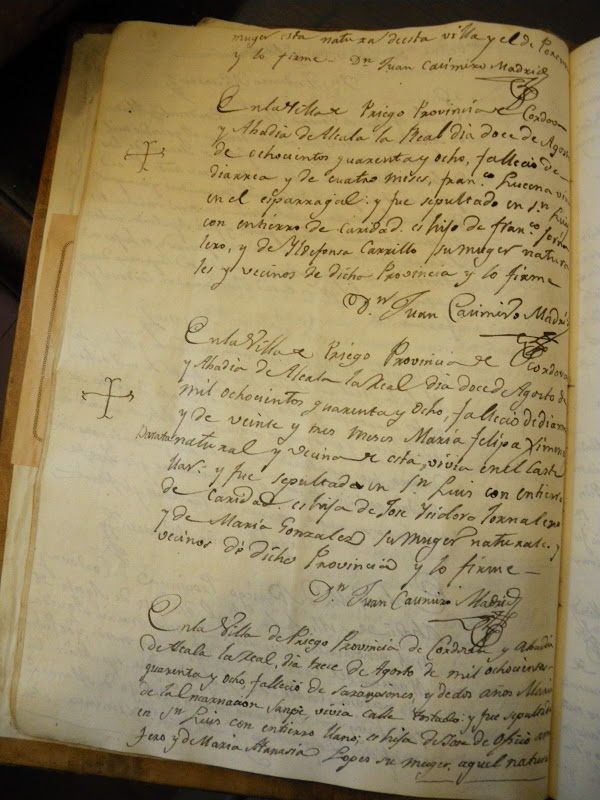 muger esta natura deesta villa y el de
y lo firme - Dn. Juan Casimiro Madrid
En la Villa de Priego Provincia de Cordova
y Abadia de Alcala la Real dia doce de Agosto
de ochocientos quarenta y ocho, fallecio de
diarrea y de cuatro meses, Franco. Lucena vivia
en el esparragal: y fue sepultado en Sn. Luis
con entierro de caridad. es hijo de Franco. Jorna
lero, y de Yldefonsa Carrillo su muger natura
les y vecinos de dicho Provincia y lo firme
Dn. Juan Casimiro Madrid
En la Villa de Priego Provincia de Cordova
y Abadia de Alcala la Real dia doce de Agosto de
mil ochocientos quarenta y ocho, fallecio de diarrea
y de veinte y tres meses Maria Felipa Ximenez
natural y vecina de esta, vivia en el Caste
llar: y fue sepultada en Sn. Luis con entierro
de Caridad es hija de Jose Ysidoro Jornalero
y de Maria Gonzalez su muger naturales y
vecinos de dicho Provincia y lo firme -
Dn. Juan Casimiro Madrid
En la Villa de Priego Provincia de Cordova y Abadia
de Alcala la Real, dia trece de Agosto de mil ochocientos
quarenta y ocho, fallecio de Sarampiones, y de dos años Maria
de la Encarnacion, vivia calle Tostado: y fue sepultada
en Sn. Luis con entierro llano; es hija de Jose de Oficio
y de Maria Atanasia Lopez su muger, aquel natural